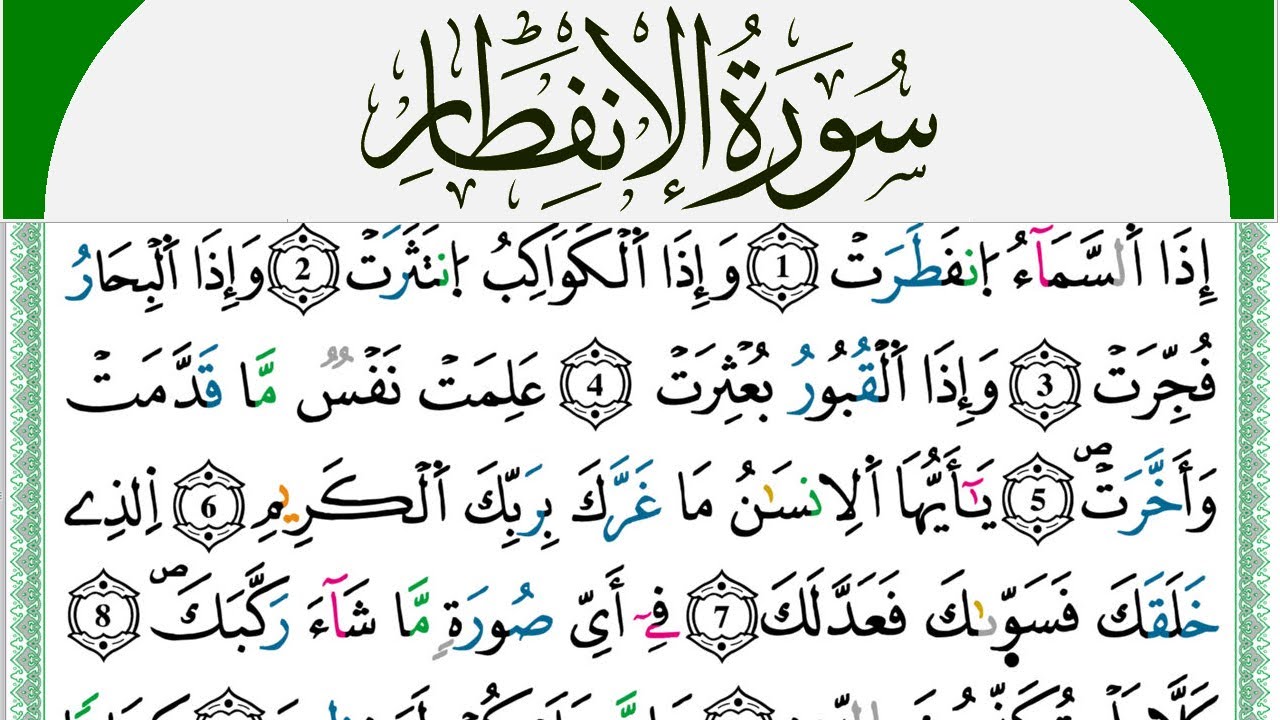 سُورَةُ الإِنفِطَارِ
إِذَا اَ۬لسَّمَآءُ اُ۪نفَطَرَتْ 1 وَإِذَا اَ۬لْكَوَاكِبُ اُ۪نتَثَرَتْ 2 وَإِذَا اَ۬لْبِحَارُ
فُجِّرَتْ 3 وَإِذَا اَ۬لْقُبُورُ بُعْثِرَتْ 4 عَلِمَتْ نَفْسٌ مَّا قَدَّمَتْ
وَأَخَّرَتْۖ 5 يَٰٓأَيُّهَا اَ۬لِانسَٰنُ مَا غَرَّكَ بِرَبِّكَ اَ۬لْكَرِيمِ 6 اِ۬لذِے
خَلَقَكَ فَسَوّ۪ىٰكَ فَعَدَّلَكَ 7 فِےٓ أَيِّ صُورَةٍ مَّا شَآءَ رَكَّبَكَۖ 8